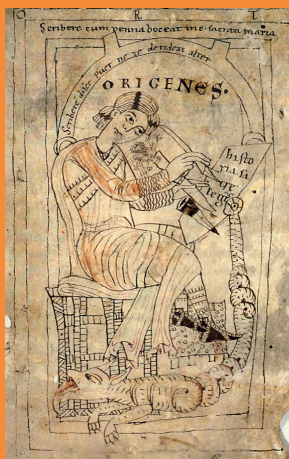 O R T
Scribere cum penna doceat me·sacrata maria
Scribere disce puer ne te derideat alter
ORIGENES·
histo
ria si
lege